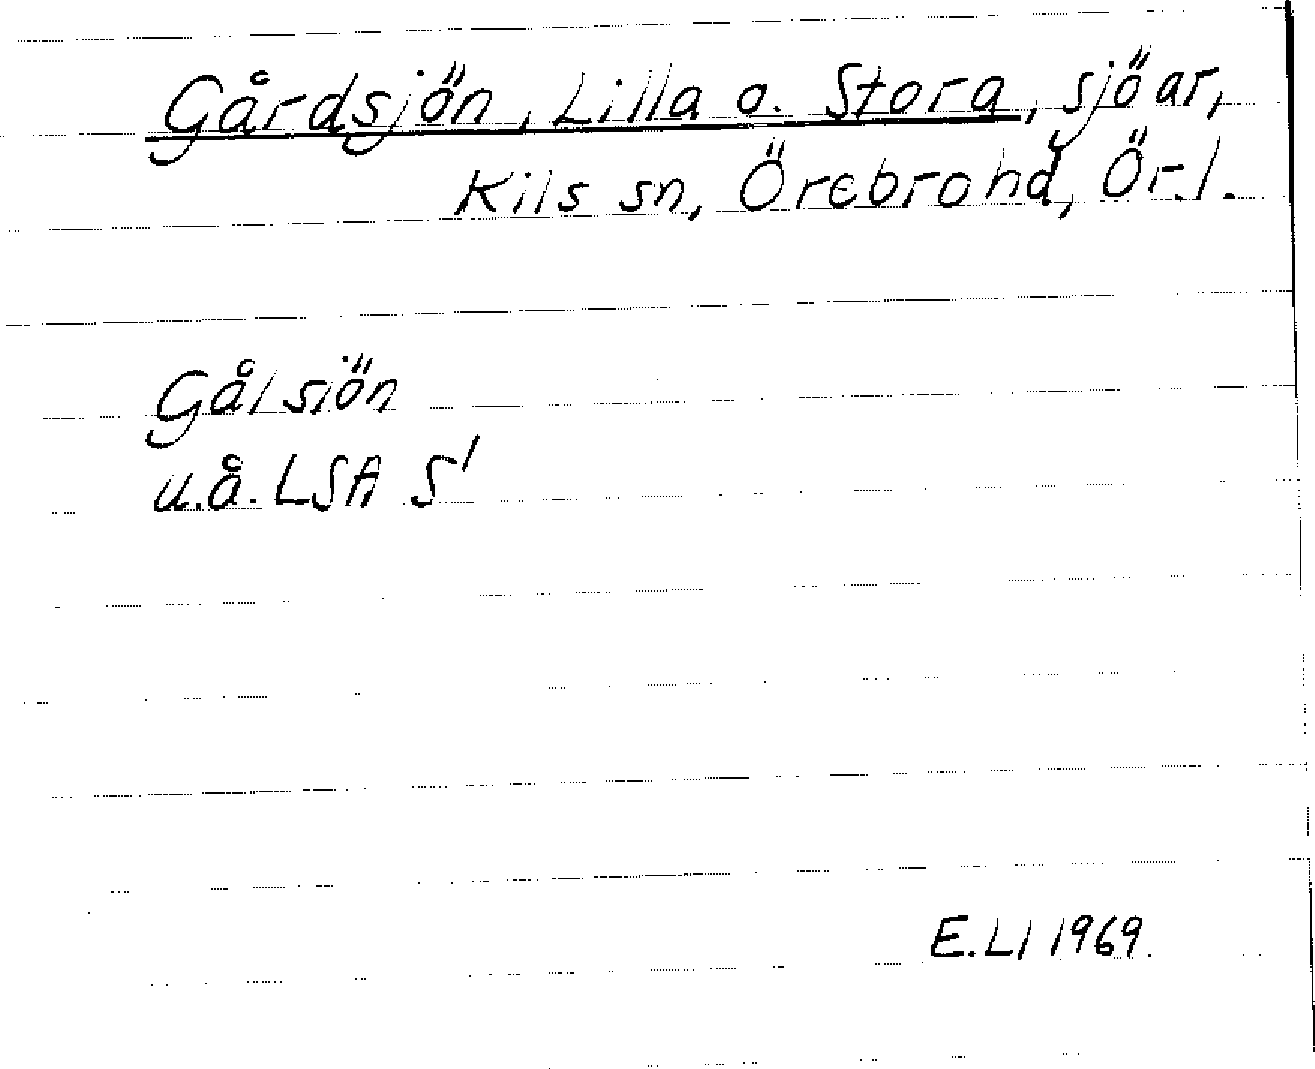 Gårdsjön, Lilla o. Stora, sjöar,
Kils sn, Örebro hd, Ör. l.
Gålsjön
u.å. LSA S1
E. Ll 1969.